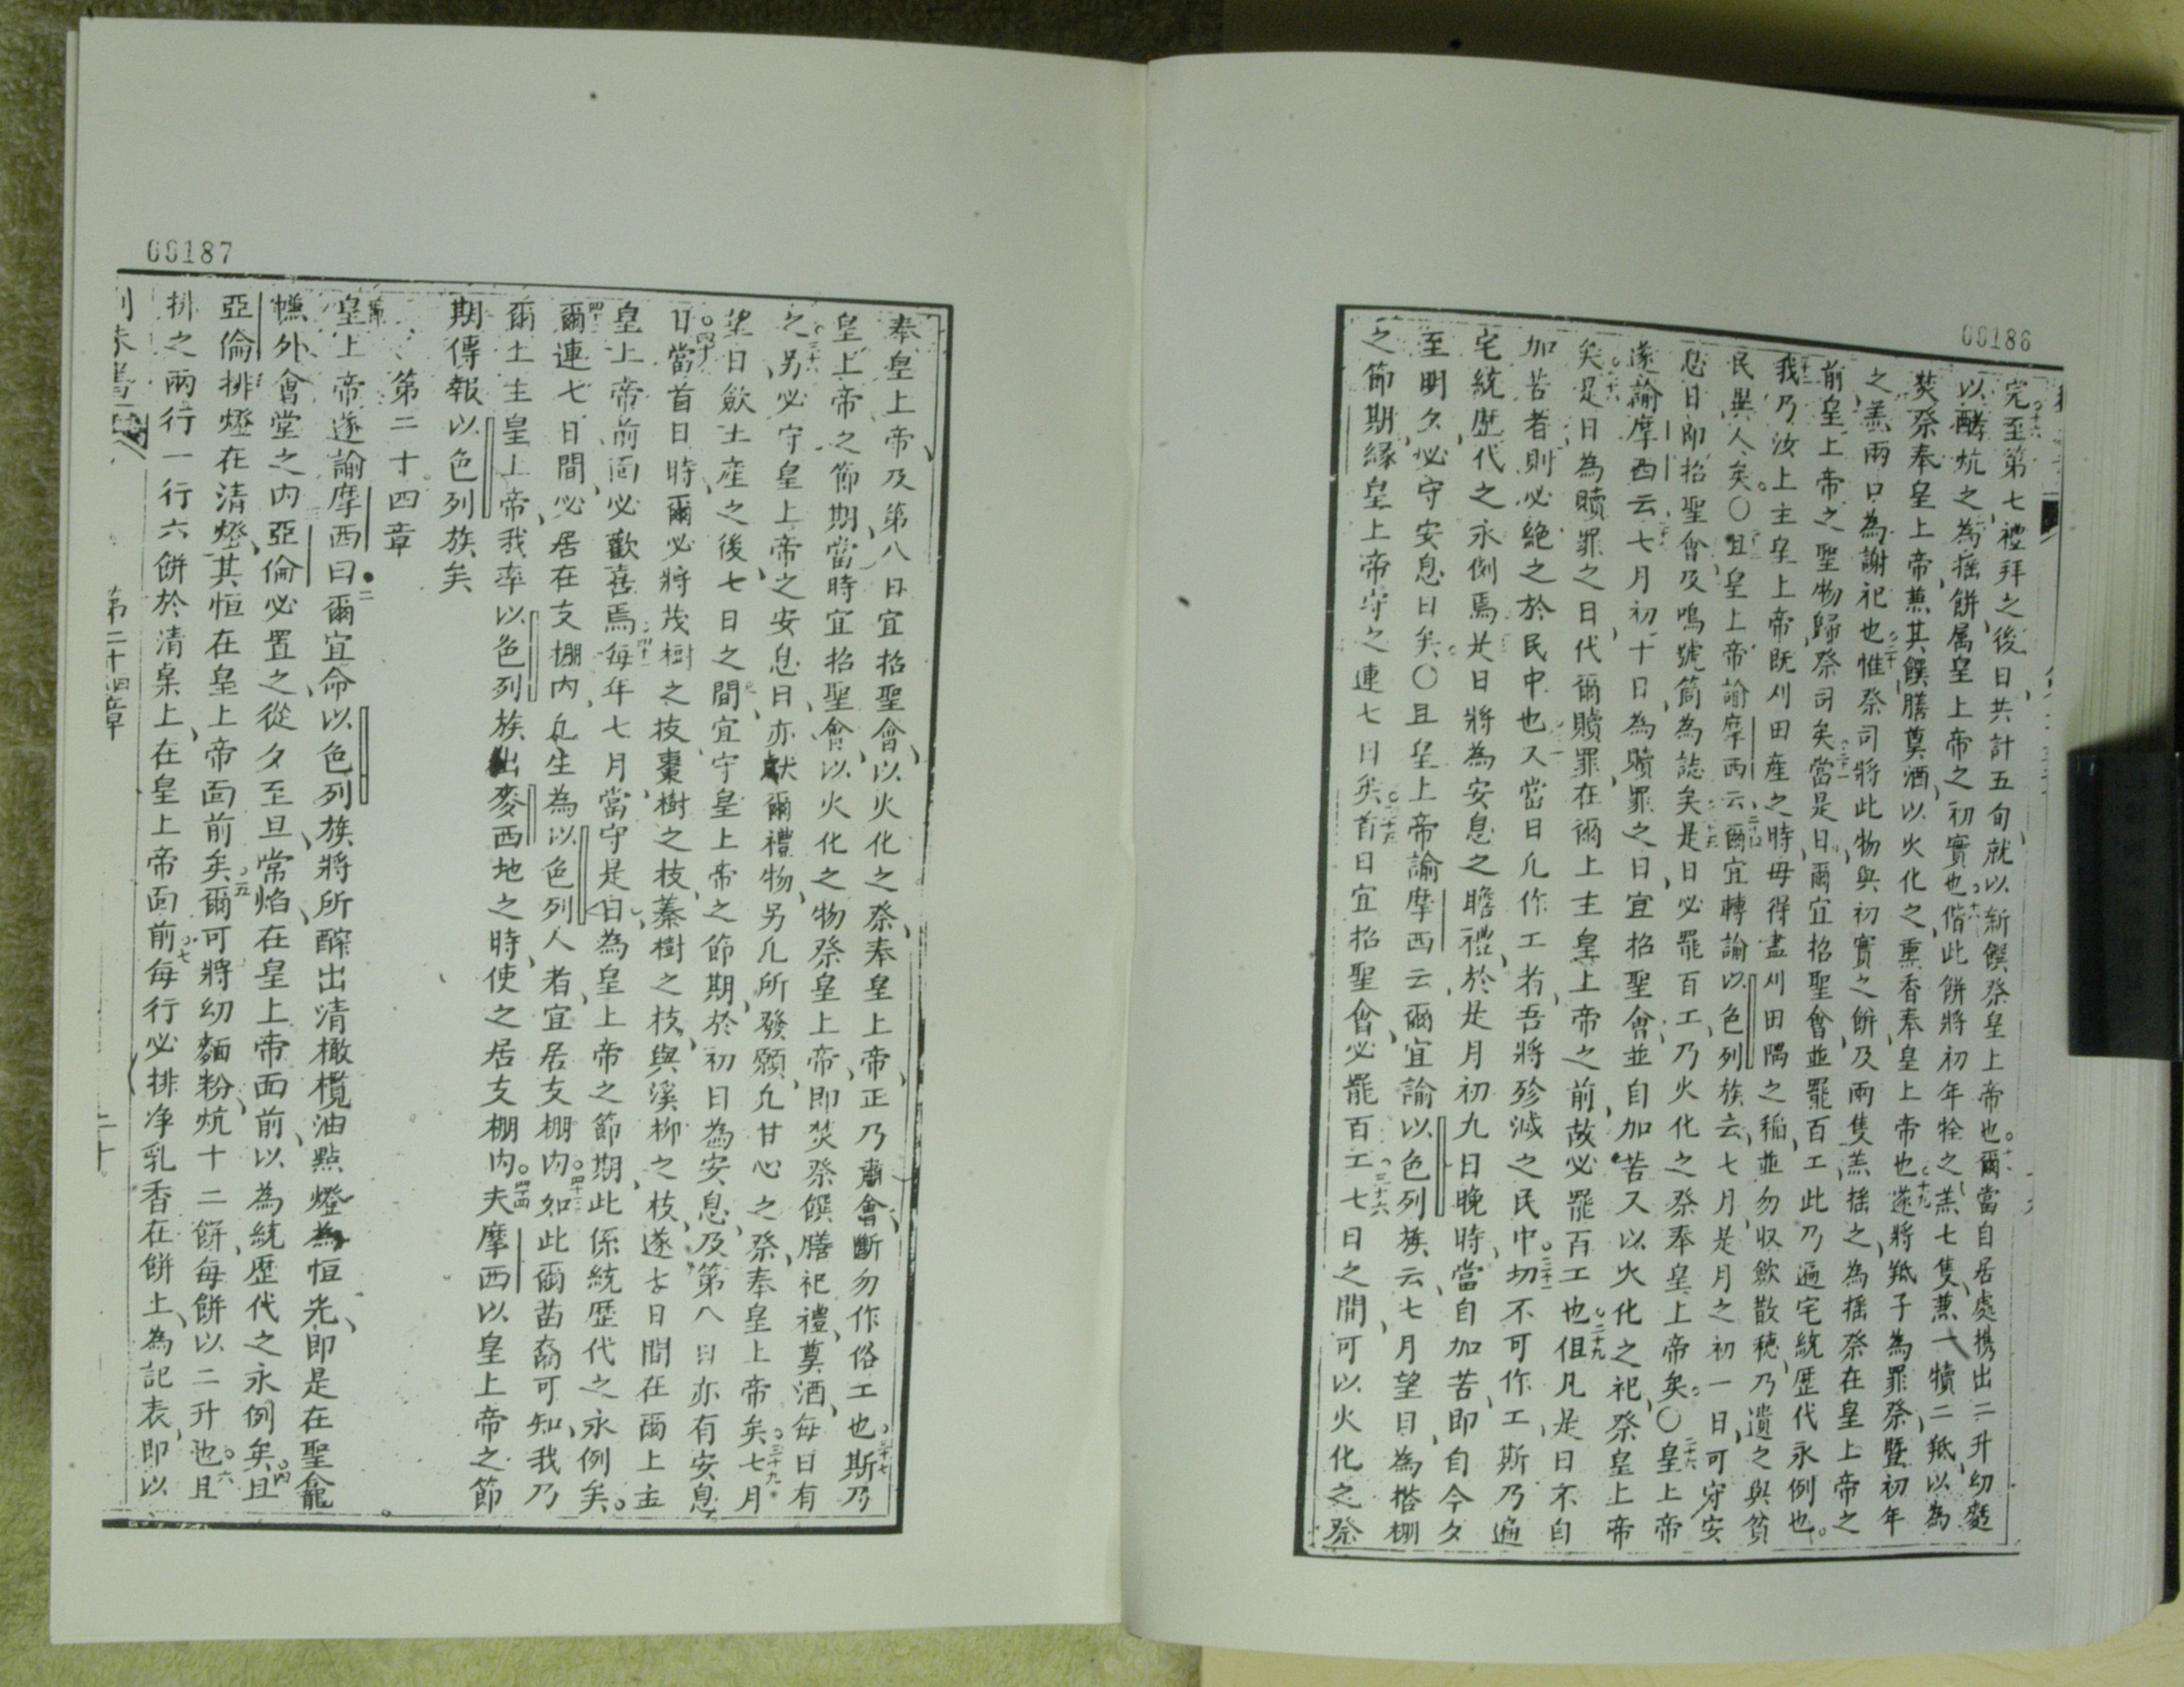 00186
完至第七禮拜之後日共計五旬就以新饌祭皇上帝也爾當自居處携出二升幼麵
以酵炕之為搖餅屬皇上帝之初實也偕此餅將初年牷之羔七隻兼一犢二羝以為
焚祭奉皇上帝兼其饌膳奠酒以火化之熏香奉皇上帝也遂將羝子為罪祭暨初年
之羔兩口為謝祀也惟祭司將此物與初實之餅及兩隻羔搖之為搖祭在皇上帝之
前皇上帝之聖物歸祭司矣當是日爾宜招聖會並罷百工此乃遍宅統歷代永例也
我乃汝上主皇上帝既刈田産之時毋得盡刈田隅之稲並勿収歛散穗乃遺之與貧
民與人矣〇且皇上帝諭摩西云爾宜轉諭以色列族云七月是月之初一日可守安
息日即招聖會及鳴號筒為誌矣是日必罷百工乃火化之祭奉皇上帝矣〇皇上帝
遂諭摩西云七月初十日為贖罪之日宜招聖會並自加苦又以火化之祀祭皇上帝
矣是日為贖罪之日代爾贖罪在爾上主皇上帝之前故必罷百工也但凡是日不自
加苦者則必絶之於民中也又當日凡作工者吾將殄滅之民中切不可作工斯乃遍
宅統歷代之永例焉是日將為安息之瞻禮於是月初九日晚時當自加苦即自今夕
至明夕必守安息日矣〇且皇上帝諭摩西云爾宜諭以色列族云七月望日為搭棚
之節期縁皇上帝守之連七日矣首日宜招聖會必罷百工七日之間可以火化之祭
00187
奉皇上帝及第八日宜招聖會以火化之祭奉皇上帝正乃肅會斷勿作俗工也斯乃
皇上帝之節期當時宜招聖會以火化之物祭皇上帝即焚祭饌膳祀禮奠酒每日有
之另必守皇上帝之安息日亦献爾禮物另凡所發願凡甘心之祭奉皇上帝矣七月
望日歛土産之後七日之間宜守皇上帝之節期於初日為安息及第八日亦有安息
日當首日時爾必將茂樹之枝棗樹之枝蓁樹之枝與溪柳之枝遂七日間在爾上主
皇上帝前面必歡喜焉每年七月當守是日為皇上帝之節期此係統歷代之永例矣
爾連七日間必居在支棚内凡生為以色列人者宜居支棚内如此爾苗裔可知我乃
爾土主皇上帝我率以色列族出麥西地之時使之居支棚内夫摩西以皇上帝之節
期傳報以色列族矣
第二十四章
皇上帝遂諭摩西曰爾宜命以色列族將所醡出清橄欖油點燈為恒光即是在聖龕
幙外會堂之内亞倫必置之從夕至旦常焰在皇上帝面前以為統歷代之永例矣且
亞倫排燈在清燈其恒在皇上帝面前矣爾可將幼麵粉炕十二餅每餅以二升也且
排之兩行一行六餅於清桌上在皇上帝面前每行必排净乳香在餅上為記表即以
第二十四章
二十